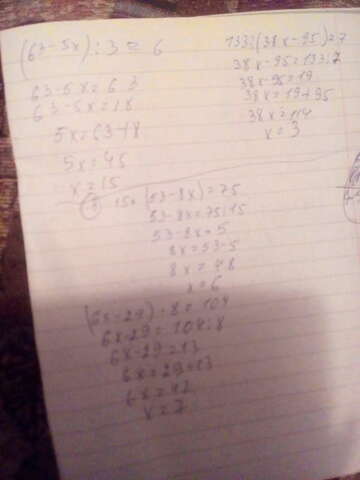 (63-5x):3=6
63-5x=6·3
63-5x=18
5x=63-18
5x=45
x=15
133:(38x-95)=7
38x-95=133:7
38x-95=19
38x=19+95
38x=114
x=3
15·(53-8x)=75
53-8x=75:15
53-8x=5
8x=53-5
8x=48
x=6
(6x-29)·8=104
6x-29=104:8
6x-29=13
6x=29+13
6x=42
x=7